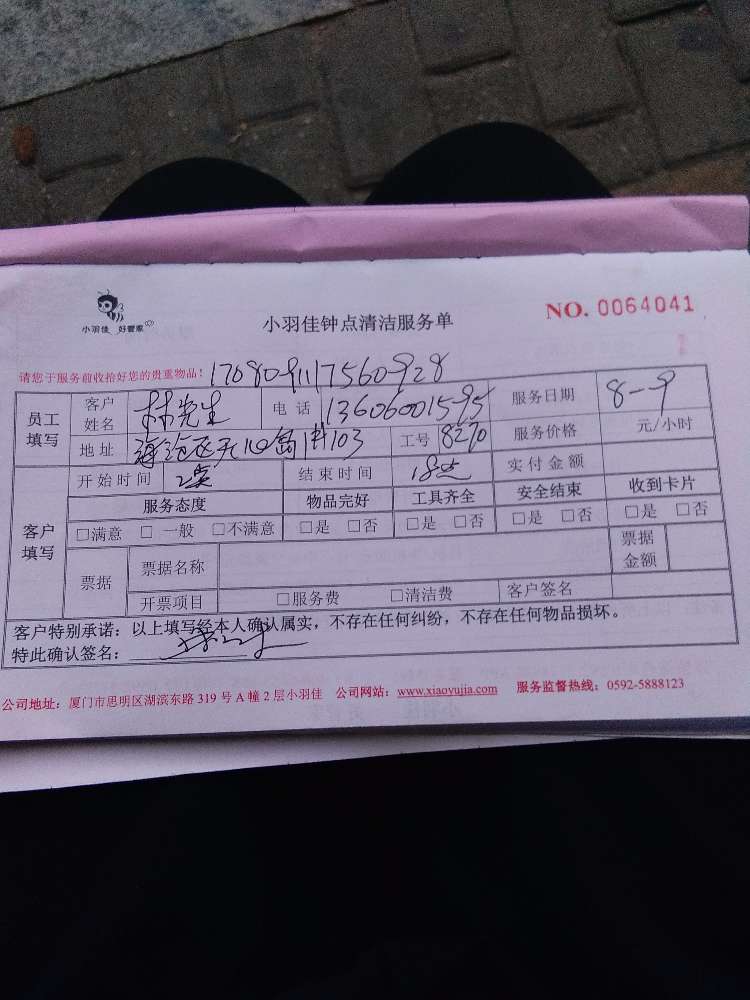 小羽佳 好管家
小羽佳钟点清洁服务单
NO. 0064041
请您于服务前收拾好您的贵重物品！
员工填写 客户姓名 林先生 电话 13606001595 服务日期 8-9
地址 103 工号 8270 服务价格 元/小时
客户填写 开始时间 结束时间 18点 实付金额
服务态度 物品完好 工具齐全 安全结束 收到卡片
□满意 □一般 □不满意 □是 □否 □是 □否 □是 □否 □是 □否
票据 票据名称 票据金额
开票项目 □服务费 □清洁费 客户签名
客户特别承诺：以上填写经本人确认属实，不存在任何纠纷，不存在任何物品损坏。
特此确认签名：
公司地址：厦门市思明区湖滨东路 319 号 A 幢 2 层小羽佳 公司网站：www.xiaoyujia.com 服务监督热线：0592-5888123